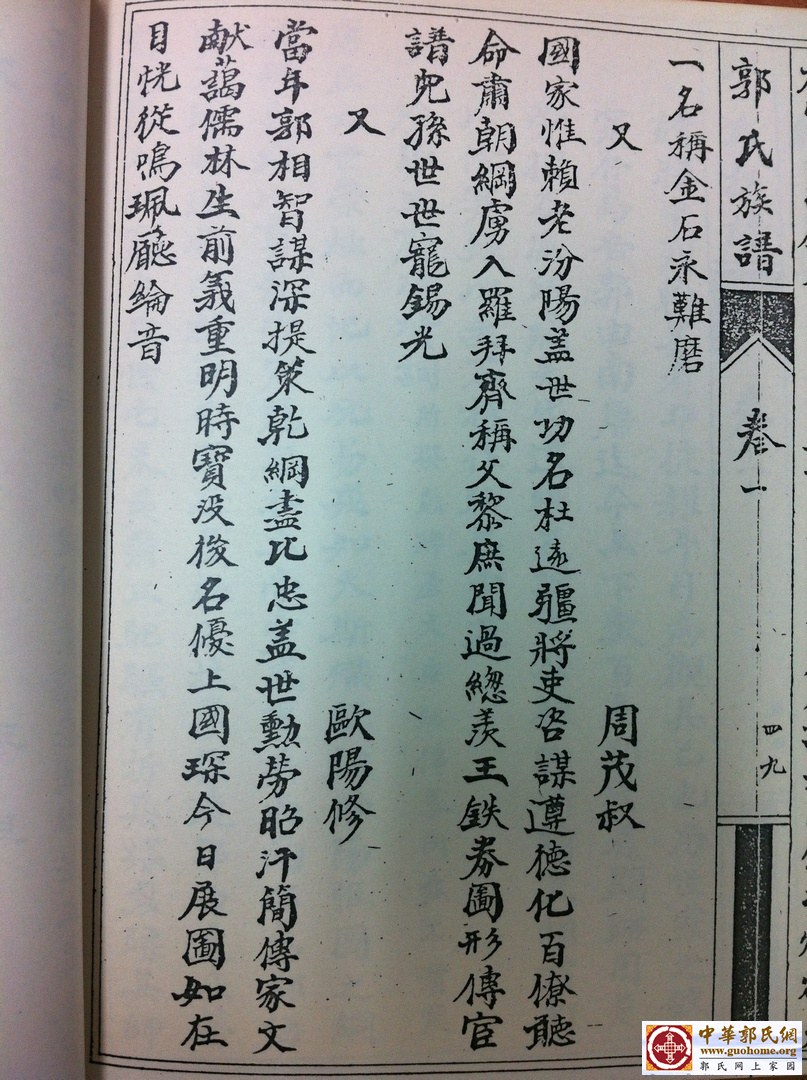 郭氏族譜
卷一
四九
一名稱金石永難磨
又
周茂叔
國家惟賴老汾陽盖世功名杜遠疆將吏咨謀遵德化百僚聽
命肅朝綱虜入羅拜齊稱父黎庶聞過緫羡王鉄券圖形傳宦
譜兒孫世世寵錫光
又
歐陽修
當年郭相智謀深提策乾綱盡比忠盖世勳勞昭汗簡傳家文
献藹儒林生前義重明時寶没後名優上國琛今日展圖如在
目恍從鳴珮廳綸音
中華郭氏網
www.guohome.org
郭氏网上家园